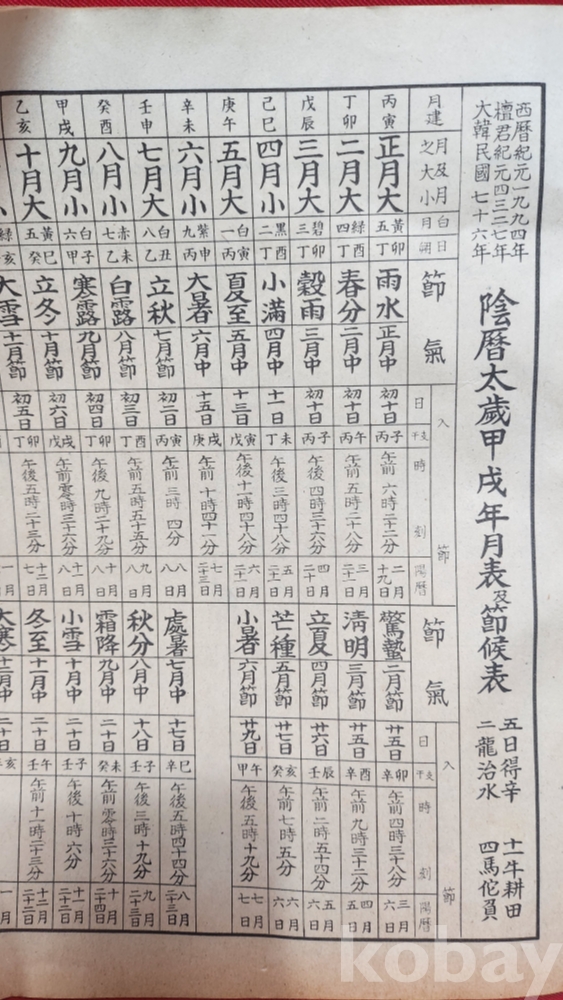 西曆紀元一九九四年
檀君紀元四三二七年
大韓民國七十六年
陰曆太歲甲戌年月表及節候表
五日得辛
二龍治水
十一牛耕田
四馬佗員
月建
月及月之大小
月白
日
節氣
入節
日干支
時刻
陽曆
節氣
入節
日干支
時刻
陽曆
丙寅
正月大
五黃
丁卯
雨水
正月中
初十日
丙子
午前六時二十二分
二月十九日
驚蟄
二月節
廿五日
辛卯
午前四時三十八分
三月六日
丁卯
二月大
四綠
丁酉
春分
二月中
初十日
丙午
午前五時二十八分
三月二十一日
淸明
三月節
廿五日
辛酉
午前九時三十二分
四月五日
戊辰
三月大
三碧
丁卯
穀雨
三月中
初十日
丙子
午後四時三十六分
四月二十日
立夏
四月節
廿六日
壬辰
午前二時五十四分
五月六日
己巳
四月小
二黑
丁酉
小滿
四月中
十一日
丁未
午後三時四十八分
五月二十一日
芒種
五月節
廿七日
癸亥
午前七時五分
六月六日
庚午
五月大
一白
丙寅
夏至
五月中
十三日
戊寅
午後十一時四十八分
六月二十一日
小暑
六月節
廿九日
甲午
午後五時十九分
七月七日
辛未
六月小
九紫
丙申
大暑
六月中
十五日
庚戌
午前十時四十一分
七月二十三日
壬申
七月大
八白
乙丑
立秋
七月節
初二日
丙寅
午前三時四分
八月八日
處暑
七月中
十七日
辛巳
午後五時四十四分
八月二十三日
癸酉
八月小
七赤
乙未
白露
八月節
初三日
丁酉
午前五時五十五分
九月八日
秋分
八月中
十八日
壬子
午後三時十九分
九月
甲戌
九月小
六白
甲子
寒露
九月節
初四日
丁卯
午後九時二十九分
十月八日
霜降
九月中
二十日
癸未
午前零時三十六分
十月二十四日
乙亥
十月大
五黃
癸巳
立冬
十月節
初六日
戊戌
午前零時三十六分
十一月八日
小雪
十月中
二十日
壬子
午後十時六分
十一月二十二日
大雪
十一月節
初五日
丁卯
午後五時二十三分
十二月七日
冬至
十一月中
二十日
壬午
午前十一時二十三分
十二月二十二日
大寒
十二月中
二十日
kobay